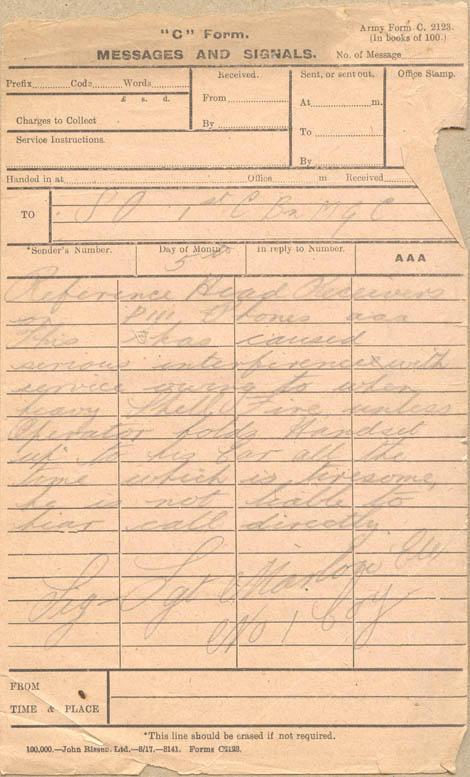 "C" Form.
Army Form C. 2123.
(In books of 100.)
MESSAGES AND SIGNALS.
No. of Message
Prefix Code Words
Received.
Sent, or sent out.
Office Stamp.
£ s. d.
From
At m.
Charges to Collect
By
To
Service Instructions.
By
Handed in at Office m Received
TO S O 1st C Bn M G C
*Sender's Number.
Day of Month
In reply to Number.
AAA
5th
Reference Head Receivers
D III Phones aaa
This has caused
serious interference with
service owing to when
heavy Shell Fire, unless
Operator holds Handset
up to his Ear all the
time which is tiresome,
he is not liable to
hear call directly
Sig Sgt
No 1 Coy
FROM
TIME & PLACE
*This line should be erased if not required.
100,000.—John Rissen, Ltd.—8/17.—8141. Forms C2123.